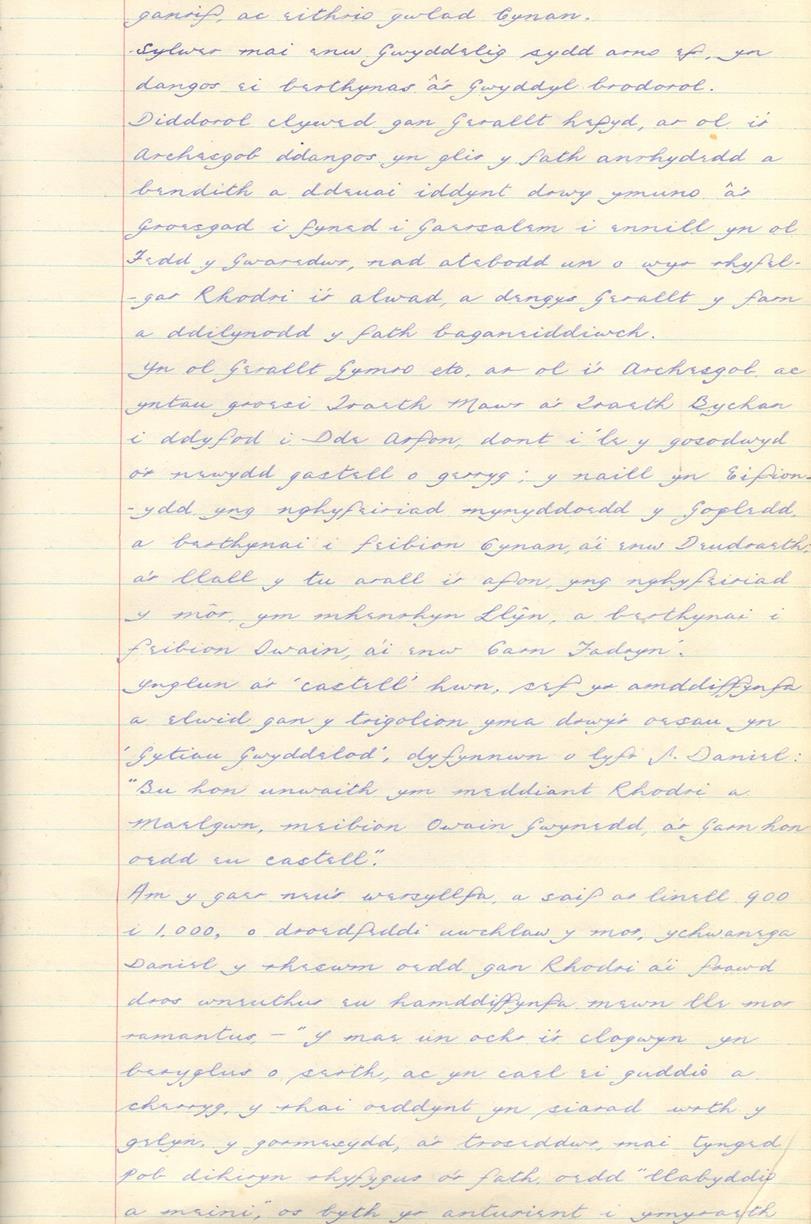 ganrif, ac eithrio gwlad Cynan.
Sylwer mai enw Gwyddelig sydd arno ef, yn
dangos ei berthynas â'r Gwyddyl brodorol.
Diddorol clywed gan Gerallt hefyd, ar ol i'r
Archesgob ddangos yn glir y fath anrhydedd a
bendith a ddeuai iddynt drwy ymuno â'r
Groesgad i fyned i Gaersalem i ennill yn ol
Fedd y Gwaredwr, nad atebodd un o wyr rhyfel-
-gar Rhodri i'r alwad, a dengys Gerallt y farn
a ddilynodd y fath baganeiddiwch.
Yn ol Gerallt Gymro eto, ar ol i'r Archesgob ac
yntau groesi Traeth Mawr a'r Traeth Bychan
i ddyfod i Dde Arfon, dont i 'le y gosodwyd
o'r newydd gastell o gerryg; y naill yn Eifion-
-ydd yng nghyfeiriad mynyddoedd y Gogledd,
a berthynai i feibion Cynan, a'i enw Deudraeth;
a'r llall y tu arall i'r afon, yng nghyfeiriad
y môr, ym mhenrhyn Llŷn, a berthynai i
feibion Owain, a'i enw Carn Fadryn'.
Ynglun a'r 'castell' hwn, sef yr amddiffynfa
a elwid gan y trigolion yma drwy'r oesau yn
'Gytiau Gwyddelod', dyfynnwn o lyfr J. Daniel:
"Bu hon unwaith ym meddiant Rhodri a
Maelgwn, meibion Owain Gwynedd, a'r Garn hon
oedd eu castell".
Am y gaer neu'r wersyllfa, a saif ar linell 900
i 1,000, o droedfeddi uwchlaw y mor, ychwanega
Daniel y rheswm oedd gan Rhodri a'i frawd
dros wneuthur eu hamddiffynfa mewn lle mor
ramantus, — "Y mae un ochr i'r clogwyn yn
beryglus o serth, ac yn cael ei guddio a
cherryg, y rhai oeddynt yn siarad wrth y
gelyn, y gormesydd, a'r troseddwr, mai tynged
pob dihiryn rhyfygus o'r fath, oedd "llabyddio
a meini," os byth yr anturient i ymyraeth